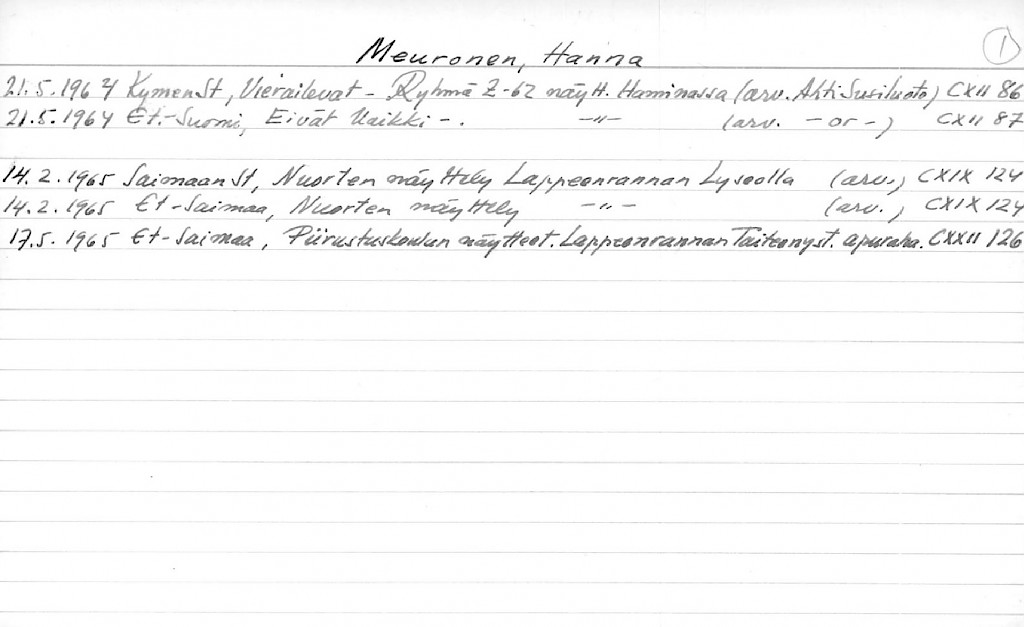 ①
Meuronen, Hanna
21.5.1964 KymenSt, Vierailevat - Ryhmä Z-62 näytt. Haminassa (arv. Ahti Susiluoto) CXII 86
21.5.1964 Et.-Suomi, Eivät Kaikki - . -"- (arv. -or-) CXII 87
14.2.1965 SaimaanSt, Nuorten näyttely Lappeenrannan Lyseolla (arv.) CXIX 124
14.2.1965 Et-Saimaa, Nuorten näyttely -"- (arv.) CXIX 124
17.5.1965 Et-Saimaa, Piirustuskoulun näytteet. Lappeenrannan Taiteenyst. apuraha. CXXII 126